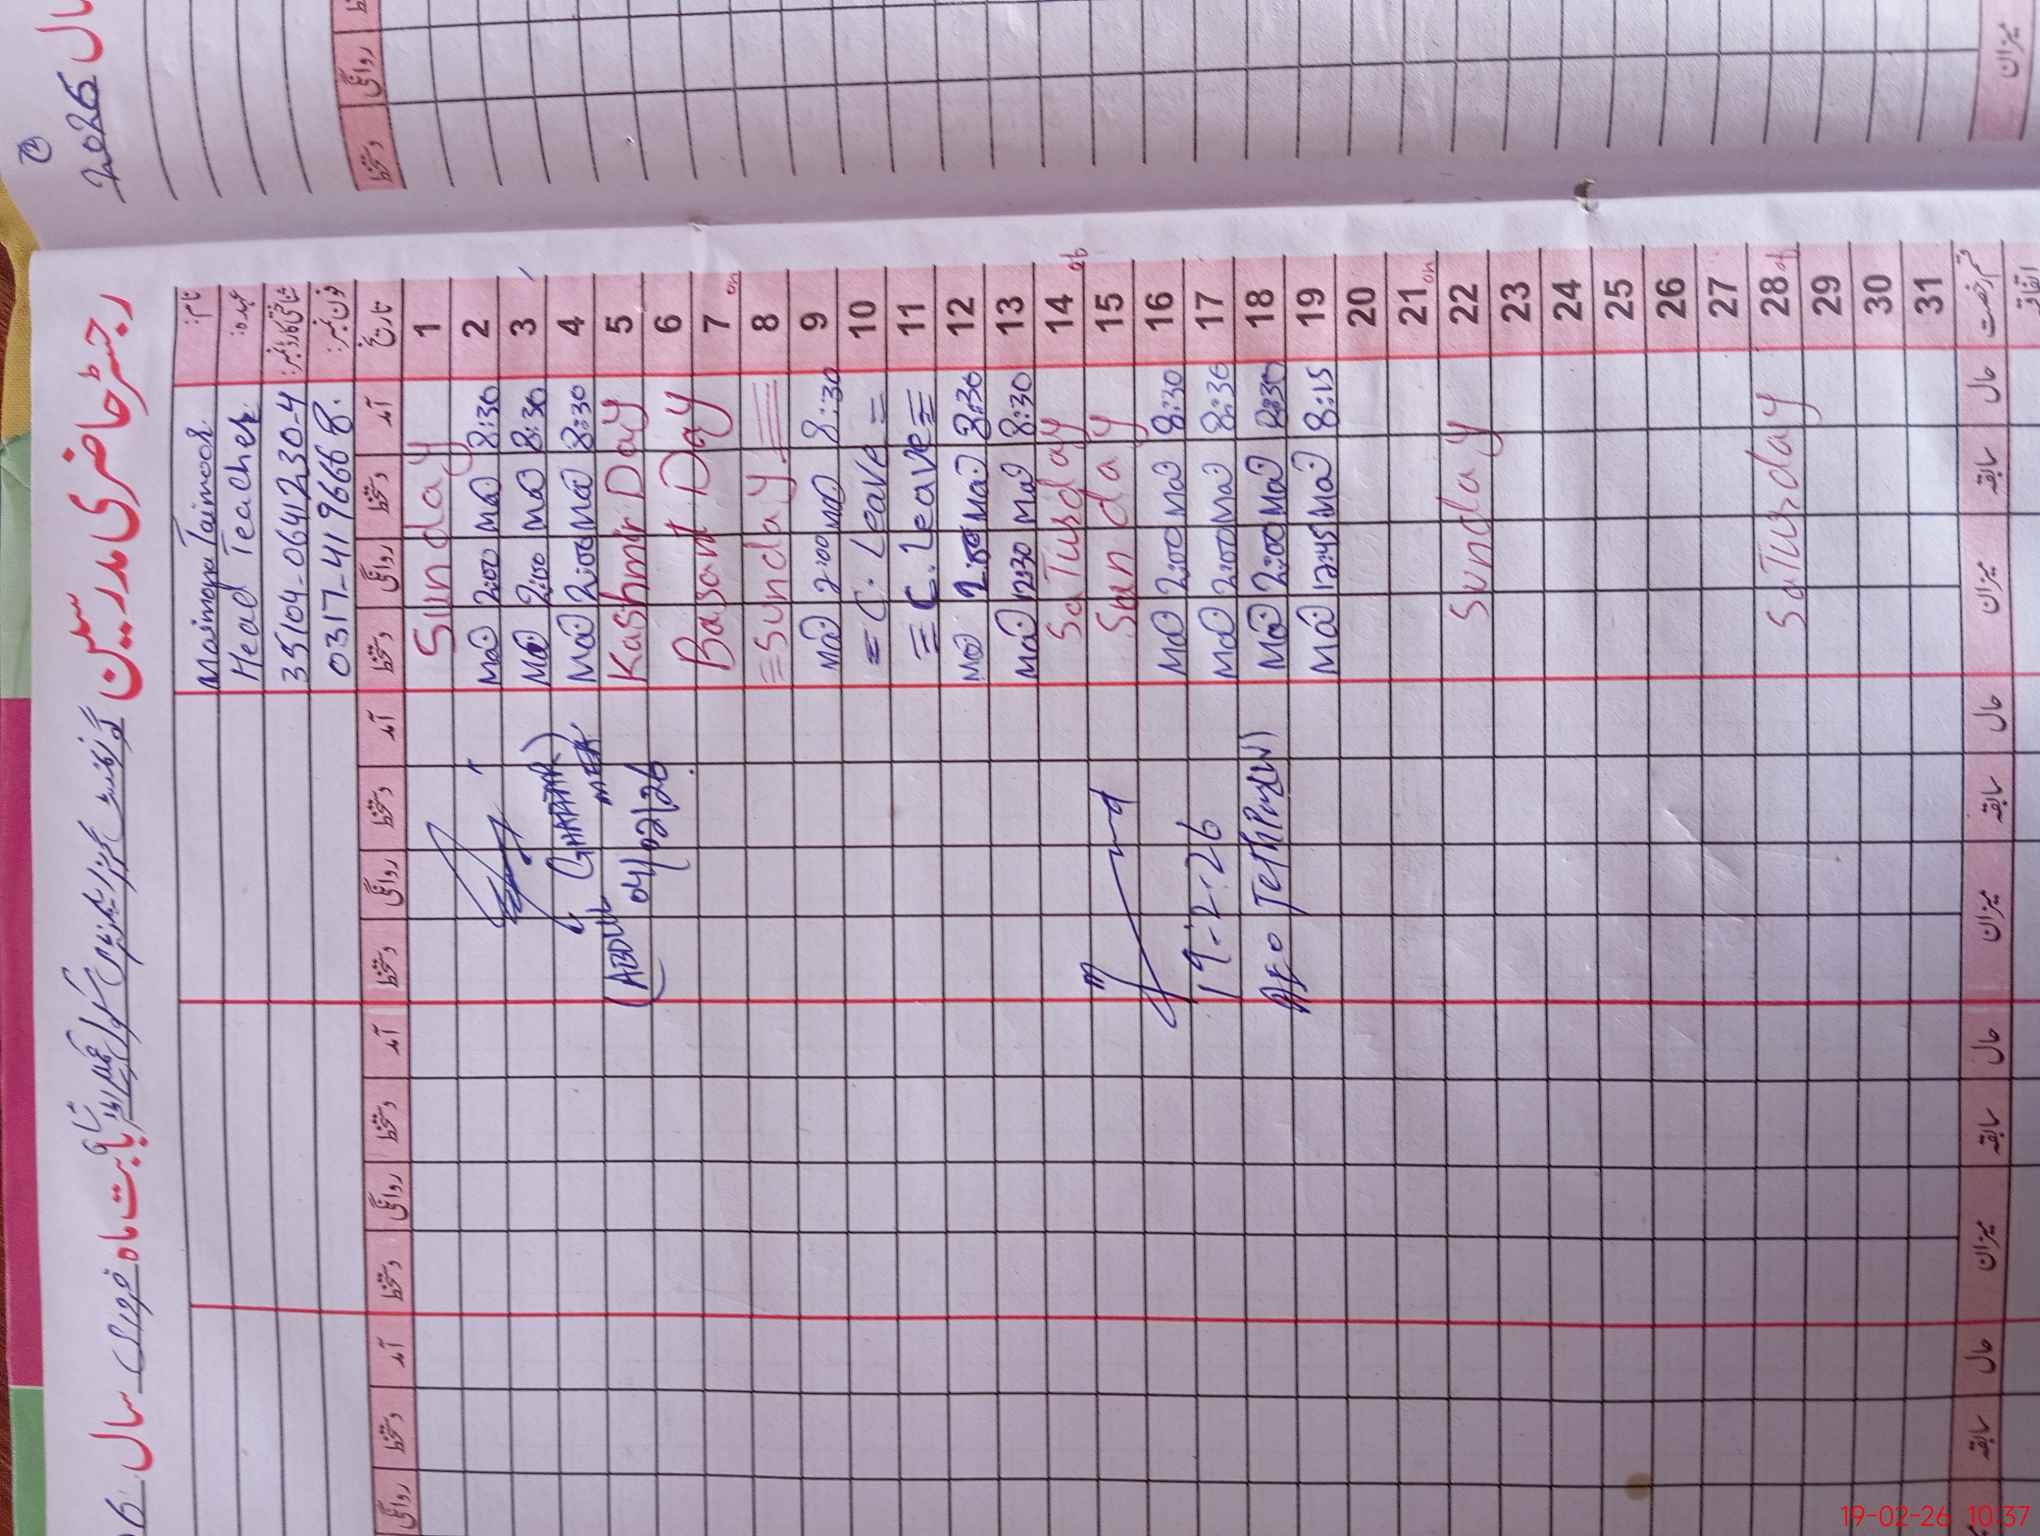 رجسٹر حاضری مدرسین
بابت ماہ فروری سال
2026 سال
نام: Maimoona Taimoor
عہدہ: Head Teacher
شناختی کارڈ نمبر: 35104-0641230-4
فون نمبر: 0317-4196668
تاریخ آمد دستخط روانگی دستخط آمد دستخط روانگی دستخط آمد دستخط روانگی دستخط آمد دستخط روانگی
1 Sunday
2 8:30 Ma 2:00 Ma
3 8:30 Ma 2:00 Ma
4 8:30 Ma 2:00 Ma
5 Kashmir Day
6 Basant Day
7 on
8 =Sunday=
9 8:30 Ma 2:00 Ma
10 = C. Leave =
11 = C. Leave =
12 8:30 Ma 2:00 Ma
13 8:30 Ma 12:30 Ma
14 Saturday
15 Sunday
16 8:30 Ma 2:00 Ma
17 8:30 Ma 2:00 Ma
18 8:30 Ma 2:00 Ma
19 8:15 Ma 12:45 Ma
20
21 on
22 Sunday
23
24
25
26
27
28 Saturday
29
30
31
(ABDUL GHAFFAR)
04/02/26
19-2-26
قسم رخصت حال سابقہ میزان حال سابقہ میزان حال سابقہ میزان حال سابقہ
اتفاقیہ
دستخط روانگی
میزان
19-02-26 10:37